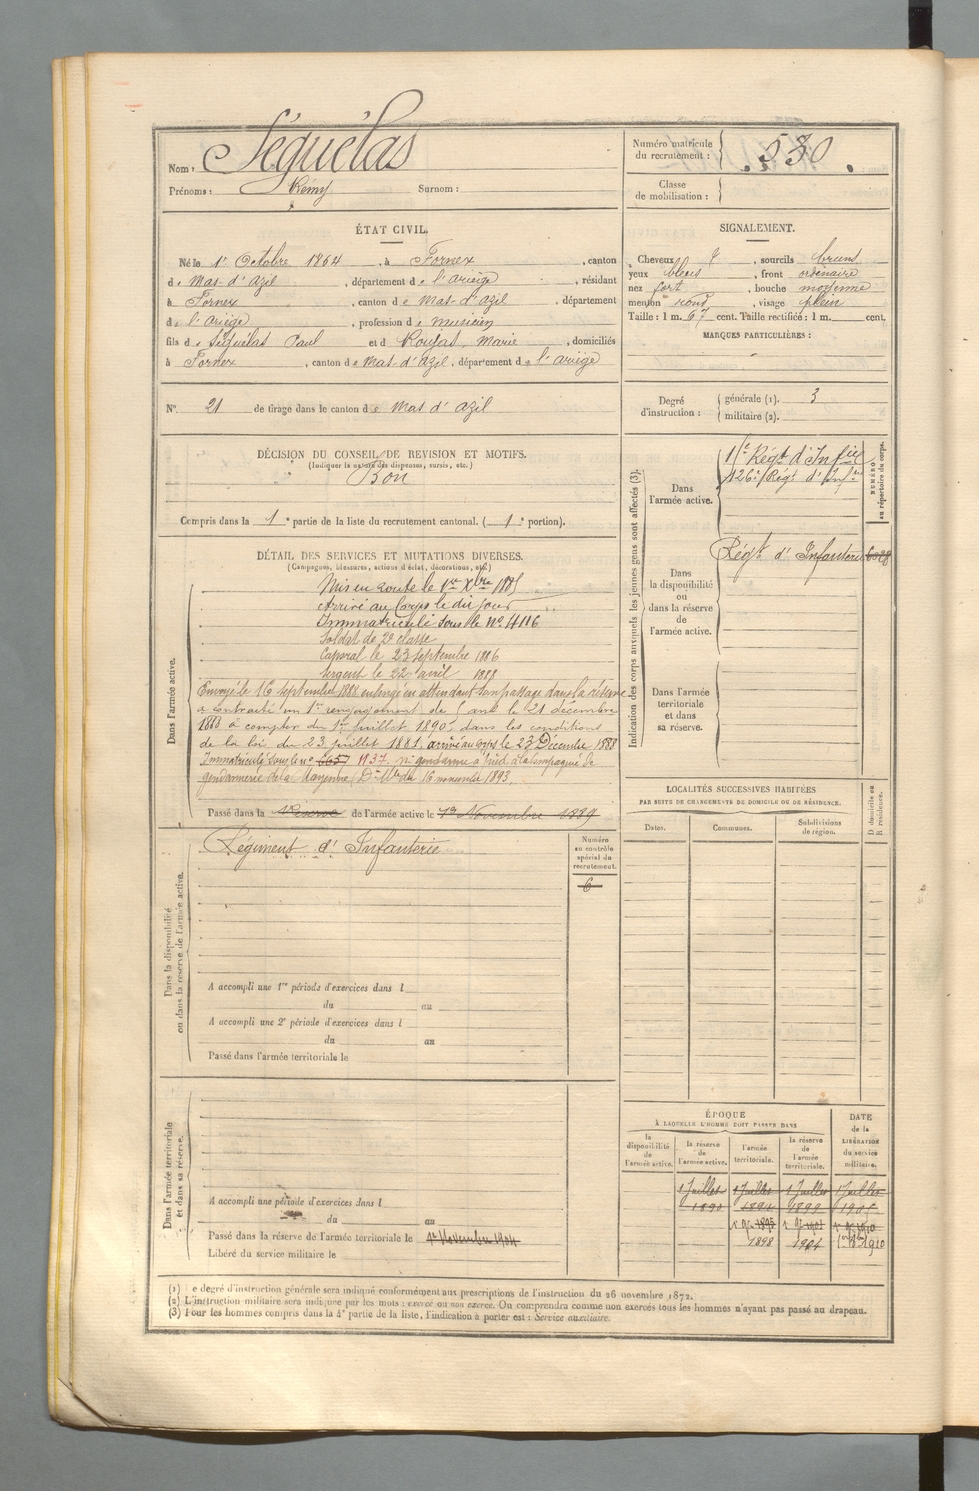 Nom : Séguélas
Prénoms : Rémy Surnom :
Numéro matricule
du recrutement : 530.
Classe
de mobilisation :
ÉTAT CIVIL.
Né le 1er Octobre 1864, à Fornex, canton
de Mas-d'Azil, département de l'ariège, résidant
à Fornex, canton de Mas-d'Azil, département
de l'ariège, profession de musicien
fils de Séguélas Paul et d Roujas, Marie, domiciliés
à Fornex, canton de Mas-d'Azil, département de l'ariège
SIGNALEMENT.
Cheveux, sourcils bruns
yeux bleus, front ordinaire
nez fort, bouche moyenne
menton rond, visage plein
Taille : 1 m. 67 cent. Taille rectifiée : 1 m. cent.
MARQUES PARTICULIÈRES :
N° 21 de tirage dans le canton de Mas d'Azil
Degré
d'instruction :
générale (1). 3
militaire (2).
DÉCISION DU CONSEIL DE REVISION ET MOTIFS.
(Indiquer la nature des dispenses, sursis, etc.)
Bon
Compris dans la 1e partie de la liste du recrutement cantonal. (1e portion).
DÉTAIL DES SERVICES ET MUTATIONS DIVERSES.
(Campagnes, blessures, actions d'éclat, décorations, etc.)
Dans l'armée active.
Mis en route le 1er Xbre 1885
Arrivé au Corps le dit jour
Immatriculé sous le No 4116
Soldat de 2e classe
Caporal le 23 septembre 1886
Sergent le 22 avril 1888
Envoyé le 16 septembre 1888 en congé en attendant son passage dans la réserve
a contracté un 1er rengagement de ans le 21 décembre
1888 à compter du 1er juillet 1890, dans les conditions
de la loi du 23 juillet 1881, arrivé au corps le 23 Décembre 1888
Immatriculé sous le no 6657 1137. gendarme à pied à la compagnie de
gendarmerie de la Mayenne du 16 novembre 1893.
Passé dans la Réserve de l'armée active le 1er Novembre 1889
Indication des corps auxquels les jeunes gens sont affectés (3).
Dans
l'armée active.
Régt d'Infie
126e Régt d'Infie
NUMÉRO
au répertoire du corps.
Dans
la disponibilité
ou
dans la réserve
de
l'armée active.
Régt d'Infanterie
Dans l'armée
territoriale
et dans
sa réserve.
LOCALITÉS SUCCESSIVES HABITÉES
PAR SUITE DE CHANGEMENTS DE DOMICILE OU DE RÉSIDENCE.
Dates.
Communes.
Subdivisions
de région.
D domicile ou
R résidence.
Dans la disponibilité
ou dans la réserve de l'armée active.
Régiment d'Infanterie
Numéro
au contrôle
spécial du
recrutement.
6
A accompli une 1re période d'exercices dans l
du au
A accompli une 2e période d'exercices dans l
du au
Passé dans l'armée territoriale le
Dans l'armée territoriale
et dans sa réserve.
A accompli une période d'exercices dans l
du au
Passé dans la réserve de l'armée territoriale le 1er Novembre 1904
Libéré du service militaire le
ÉPOQUE
À LAQUELLE L'HOMME DOIT PASSER DANS
la
disponibilité
de
l'armée active.
la réserve
de
l'armée active.
l'armée
territoriale.
la réserve
de
l'armée
territoriale.
DATE
de la
LIBÉRATION
du service
militaire.
1 Juillet 1 Juillet 1 Juillet 1 Juillet
1890 1894 1899 1905
1895 1901 1910
1898 1904 1910
(1) Le degré d'instruction générale sera indiqué conformément aux prescriptions de l'instruction du 26 novembre 1872.
(2) L'instruction militaire sera indiquée par les mots : exercé ou non exercé. On comprendra comme non exercés tous les hommes n'ayant pas passé au drapeau.
(3) Pour les hommes compris dans la 4e partie de la liste, l'indication à porter est : Service auxiliaire.